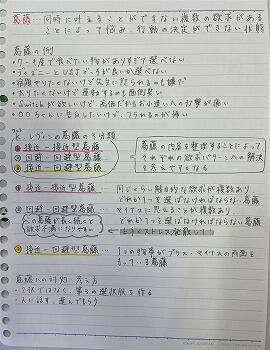 葛藤…同時に叶えることができない複数の欲求があることによって悩み、行動の決定ができない状態
葛藤の例
・ケーキ屋で食べたい物がありすぎて選べない
・ディズニーとUSJどっちが良いか選べない
・宿題やりたくないけど先生に怒られるのも嫌だ
・太りたくないけど運動するのも面倒臭い
・Switchが欲しいけど、高価だからお小遣いへの打撃が痛い
・〇〇ちんに告白したいけど、フラれるのが怖い
K.レヴィンの葛藤の3分類
① 接近-接近型葛藤
② 回避-回避型葛藤
③ 接近-回避型葛藤
葛藤の内容を整理することによって
それぞれの欲求パターンへの解決
を考えやすくなる
① 接近-接近型葛藤 … 同じくらい魅力的な欲求が複数あり、
どれか1つを選ばなければならない葛藤
② 回避-回避型葛藤 … マイナスに思えることが複数あり、
どれか1つを選ばなければならない葛藤
この葛藤が長く続くと
欲求不満になりやすい
③ 接近-回避型葛藤 … 1つの物事がプラス・マイナスの両面を
もっている葛藤
葛藤への対処・考え方
・2択ではなく、第3の選択肢を作る
・人に話す、選んでもらう